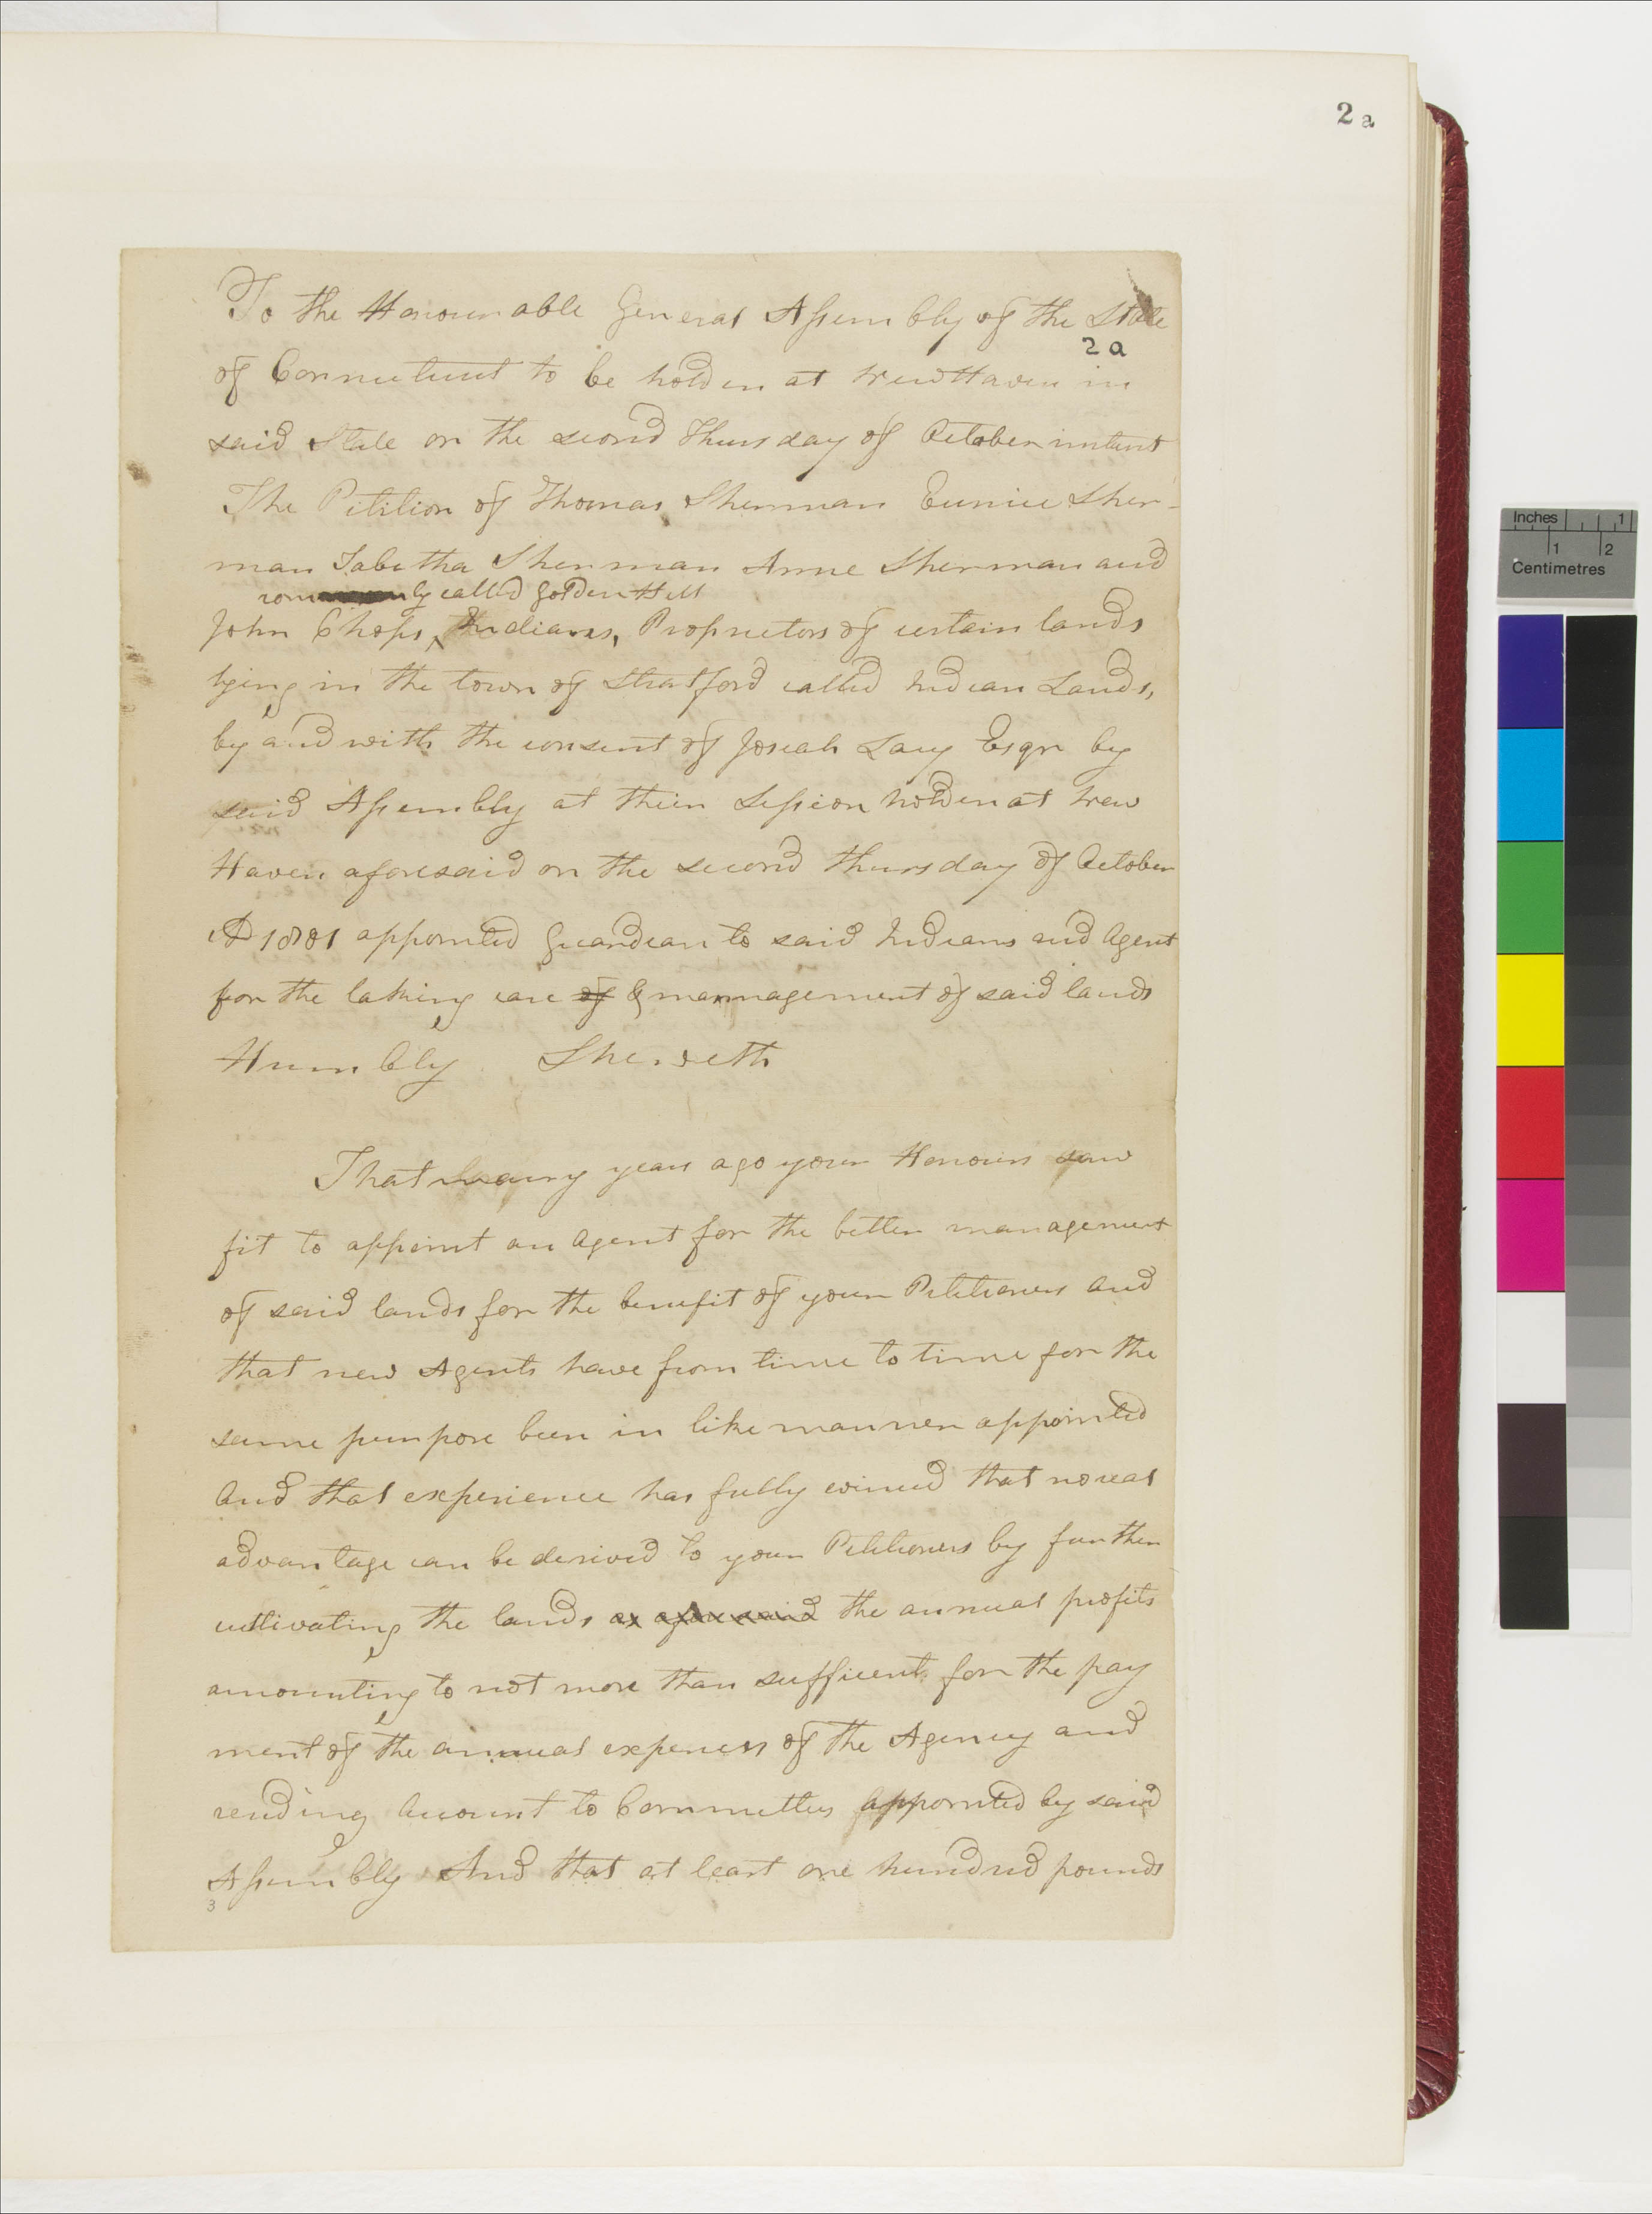 2 a
To the Honourable General Assembly of the State
2 a
of Connecticut to be holden at New Haven in
said State on the second Thursday of October instant
The Petition of Thomas Sherman Eunice Sher-
man Tabitha Sherman Anne Sherman and
commonly called Golden Hill
John Chops, Indians, Proprietors of certain lands
lying in the town of Stratford called Indian Lands,
by and with the consent of Josiah Lacy Esqr by
said Assembly at their Session holden at New
Haven aforesaid on the second Thursday of October
AD 1801 appointed Guardian to said Indians and Agent
for the taking care of & management of said lands
Humbly Sheweth
That many years ago your Honours saw
fit to appoint an Agent for the better management
of said lands for the benefit of your Petitioners And
that new Agents have from time to time for the
same purpose been in like manner appointed
And that experience has fully evinced that no real
advantage can be derived to your Petitioners by further
cultivating the lands as aforesaid the annual profits
amounting to not more than sufficient for the pay
ment of the annual expences of the Agency and
rending Account to Committees appointed by said
Assembly And that at least one hundred pounds
3
Inches 1
1 2
Centimetres